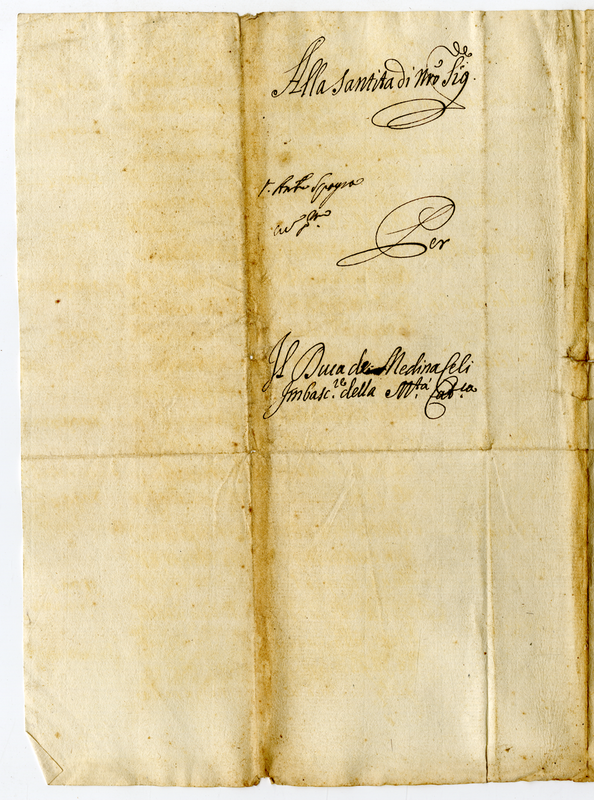 Alla Santita di Nro Sigre
Per
Il Duca de Medina Celi
Imbasc.re della M.tà Cat.ca